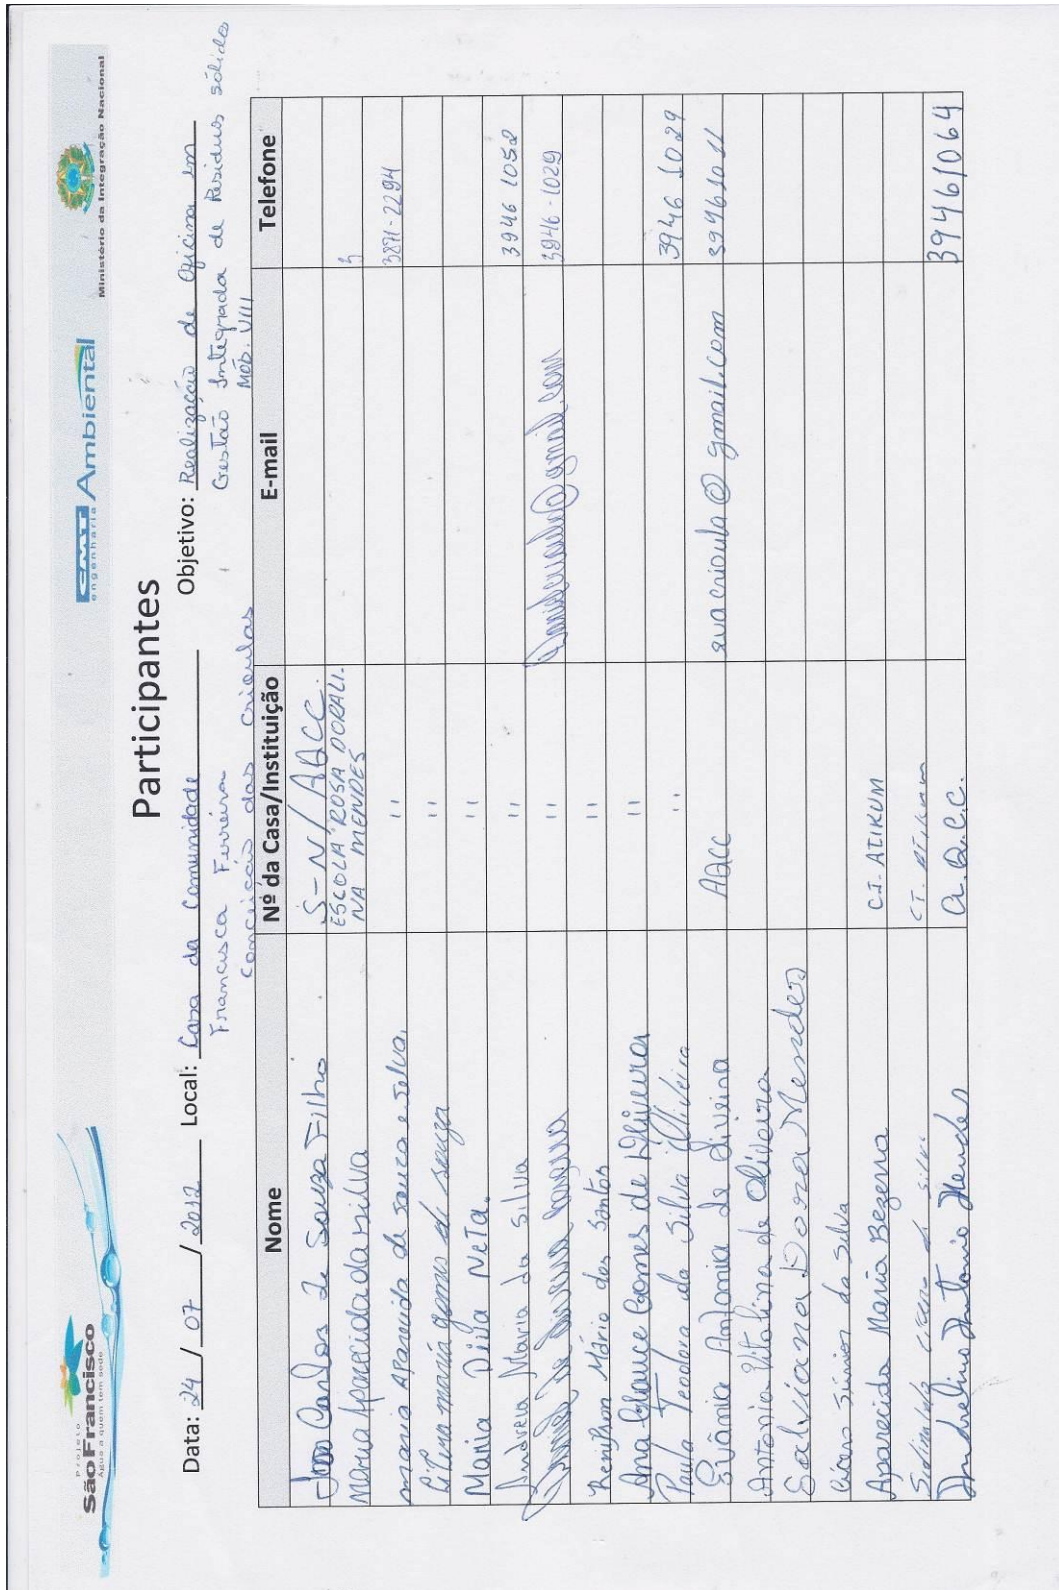 Projeto
São Francisco
Água a quem tem sede
CMT Ambiental
engenharia
Ministério da Integração Nacional
Participantes
Data: 24 / 07 / 2012 Local: Casa da Comunidade Objetivo: Realização de Oficina em
Francisca Ferreira Gestão Integrada de Resíduos sólidos
Conceição das crioulas Mód. VIII
Nome Nº da Casa/Instituição E-mail Telefone
João Carlos de Souza Filho S-N/AQCC
Maria Aparecida da silva ESCOLA ROSA DORALI-
NA MENDES
maria Aparecida de souza e silva. " 3871-2294
maria gomes de souza "
Maria Diva Neta. "
Andreia Maria da Silva " 3946 1052
" 3946-1029
Renilson Mário dos Santos "
Ana Glauce Gomes de Oliveira "
Paula Teodora da Silva Oliveira " 3946 1029
Evânia Antonia de oliveira AQCC evacrioula@gmail.com 39461011
Antonia Vitalina de Oliveira
Salviana Mendes
Cícero Júnior da Silva
Aparecida Maria Bezerra C.I. ATIKUM
Cicero da silva
Andrelino Antonio Mendes A.Q.C.C. 39461064